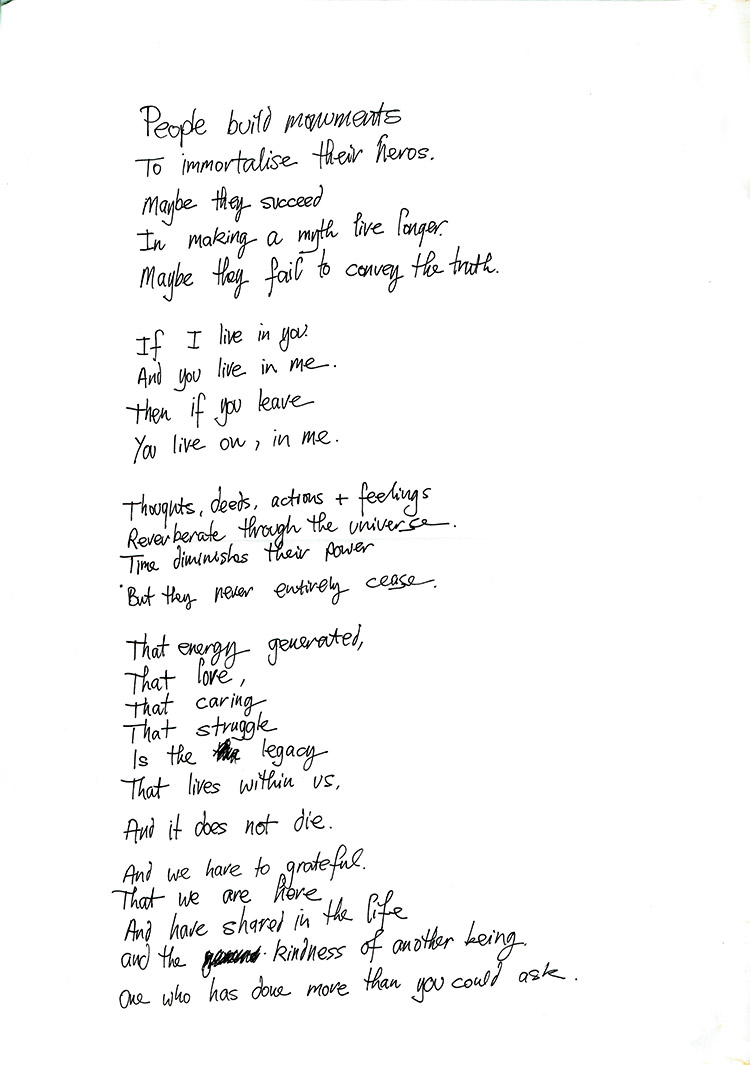 People build monuments
To immortalise their heros.
Maybe they succeed
In making a myth live longer.
Maybe they fail to convey the truth.
If I live in you.
And you live in me.
Then if you leave
You live on, in me.
Thoughts, deeds, actions + feelings
Reverberate through the universe.
Time diminishes their power
But they never entirely cease.
That energy generated,
That love,
That caring
That struggle
Is the legacy
That lives within us,
And it does not die.
And we have to grateful.
That we are here
And have shared in the life
and the kindness of another being.
One who has done more than you could ask.